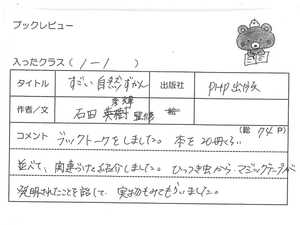 ブックレビュー
入ったクラス ( 1 - 1 )
タイトル すごい自然ずかん 出版社 PHP出版
作者/文 石田 英樹 監修 絵
(総 74 P)
コメント ブックトークをしました。本を20冊くらい
並べて、関連づけて紹介しました。ひっつき虫から、マジックテープが
発明されたことを話して、実物ももってもらいました。